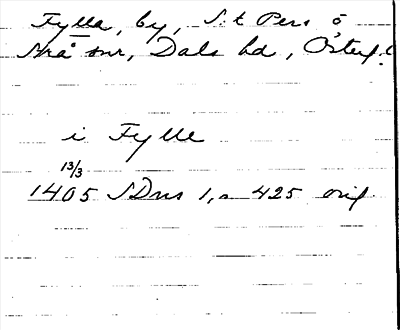 Fylla, by, S:t Pers o
Skå snr, Dals hd, Österg.
i Fylle
13/3
1405 SDns 1, 425 orig